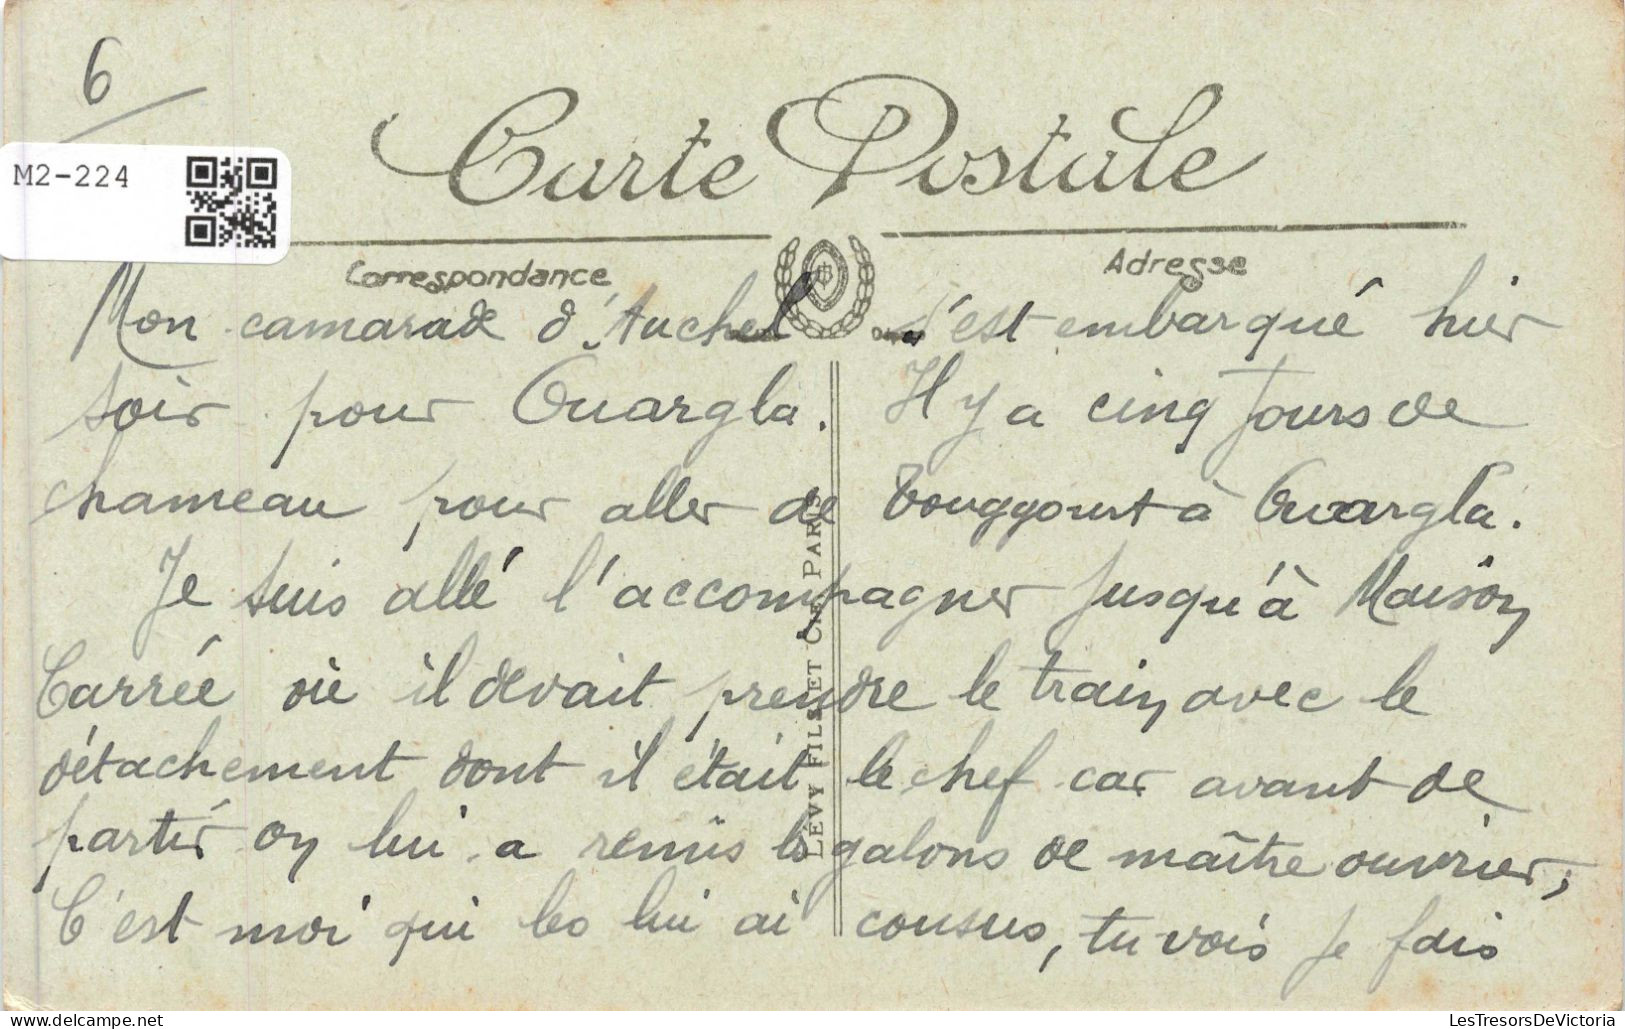 6
M2-224
Carte Postale
Correspondance
Adresse
Mon camarade d'Auchel s'est embarqué hier
soir pour Ouargla. Il y a cinq jours de
chameau pour aller de Touggourt à Ouargla.
Je suis allé l'accompagner jusqu'à Maison
Carrée où il devait prendre le train avec le
détachement dont il était le chef car avant de
partir on lui a remis les galons de maître ouvrier,
C'est moi qui les lui ai cousus, tu vois je fais
LÉVY FILS ET CIE PARIS
LesTresorsDeVictoria | Delcampe.net